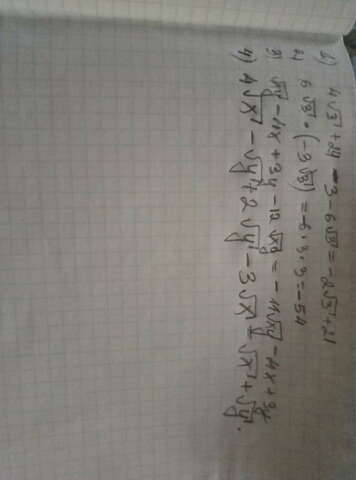 1) 4√3 + 24 - 3 - 6√3 = -2√3 + 21
2) 6√3 · (-3√3) = -6·3·3 = -54
3) √xy - 4x + 3y - 12√xy = -11√xy - 4x + 3y
4) 4√x - √y + 2√y - 3√x = √x + √y.